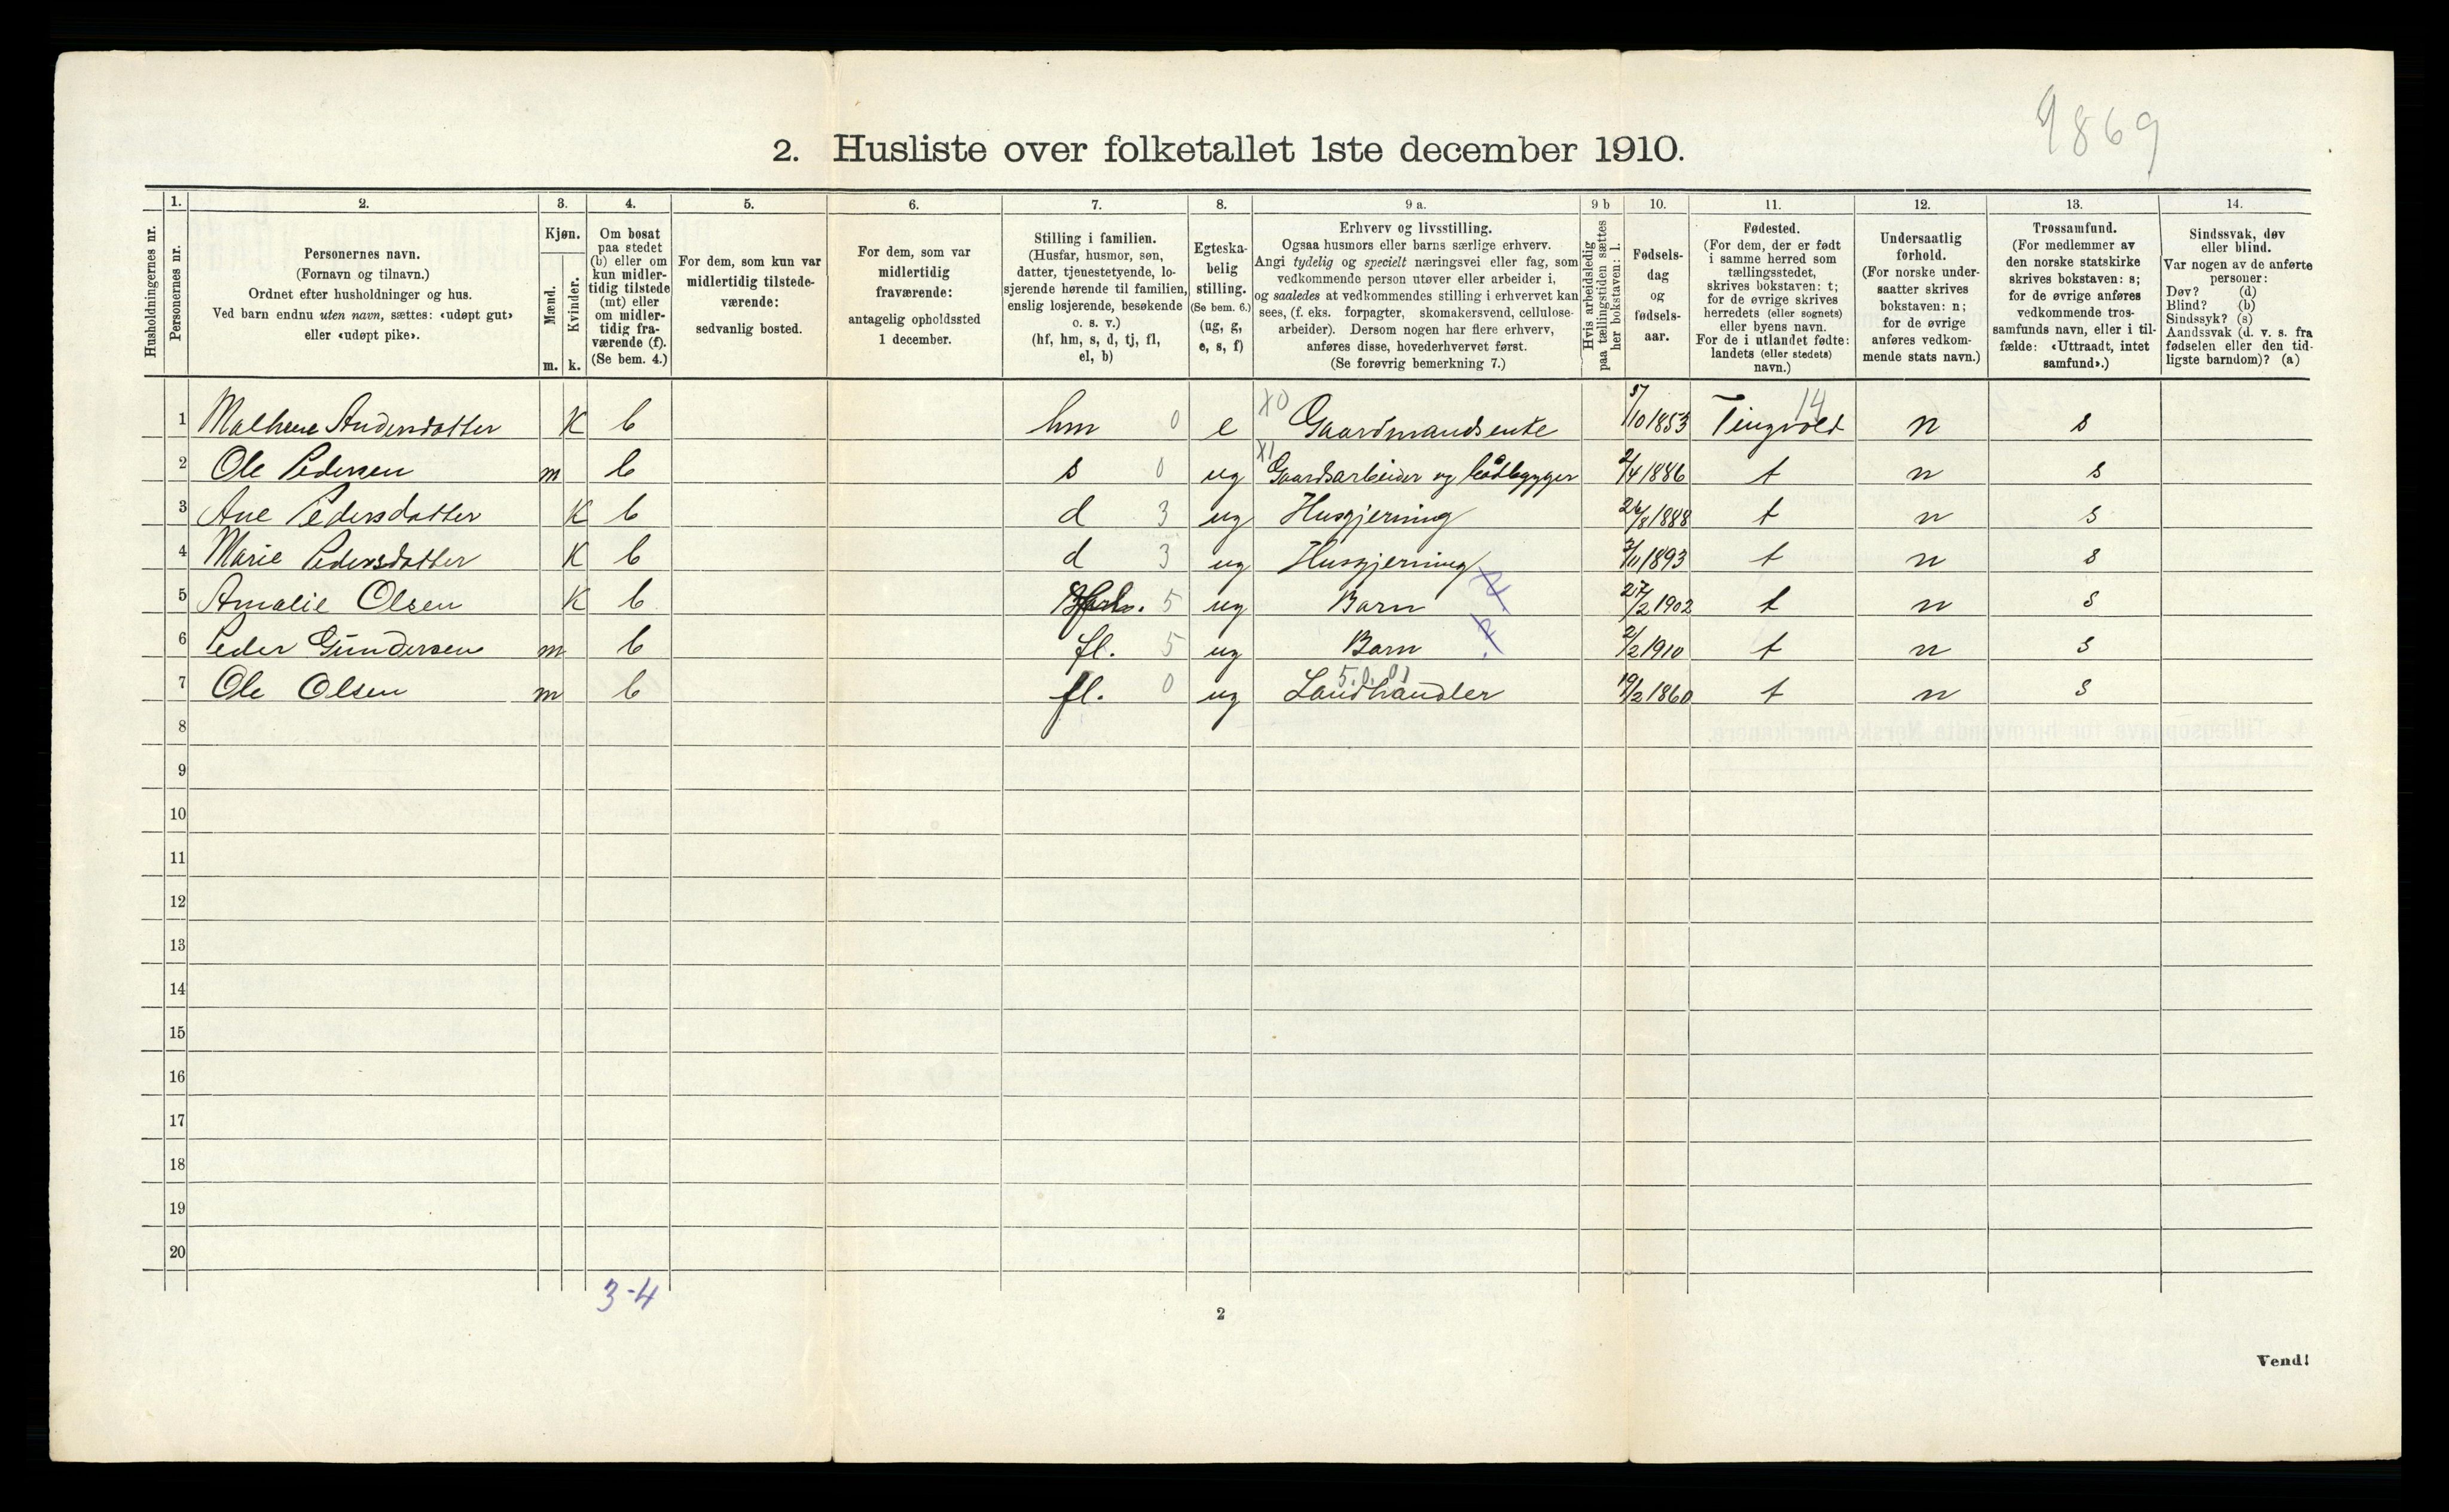 9869
2. Husliste over folketallet 1ste december 1910.
Husholdningernes nr.
1.
Personernes nr.
2.
Personernes navn.
(Fornavn og tilnavn.)
Ordnet efter husholdninger og hus.
Ved barn endnu uten navn, sættes: «udøpt gut»
eller «udøpt pike».
3.
Kjøn.
Mænd.
Kvinder.
m. k.
4.
Om bosat
paa stedet
(b) eller om
kun midler-
tidig tilstede
(mt) eller
om midler-
tidig fra-
værende (f).
(Se bem. 4.)
5.
For dem, som kun var
midlertidig tilstede-
værende:
sedvanlig bosted.
6.
For dem, som var
midlertidig
fraværende:
antagelig opholdssted
1 december.
7.
Stilling i familien.
(Husfar, husmor, søn,
datter, tjenestetyende, lo-
sjerende hørende til familien,
enslig losjerende, besøkende
o. s. v.)
(hf, hm, s, d, tj, fl,
el, b)
8.
Egteska-
belig
stilling.
(Se bem. 6.)
(ug, g,
e, s, f)
9 a.
Erhverv og livsstilling.
Ogsaa husmors eller barns særlige erhverv.
Angi tydelig og specielt næringsvei eller fag, som
vedkommende person utøver eller arbeider i,
og saaledes at vedkommendes stilling i erhvervet kan
sees, (f. eks. forpagter, skomakersvend, cellulose-
arbeider). Dersom nogen har flere erhverv,
anføres disse, hovederhvervet først.
(Se forøvrig bemerkning 7.)
9 b
Hvis arbeidsledig
paa tællingstiden sættes
her bokstaven: l.
10.
Fødsels-
dag
og
fødsels-
aar.
11.
Fødested.
(For dem, der er født
i samme herred som
tællingsstedet,
skrives bokstaven: t;
for de øvrige skrives
herredets (eller sognets)
eller byens navn.
For de i utlandet fødte:
landets (eller stedets)
navn.)
12.
Undersaatlig
forhold.
(For norske under-
saatter skrives
bokstaven: n;
for de øvrige
anføres vedkom-
mende stats navn.)
13.
Trossamfund.
(For medlemmer av
den norske statskirke
skrives bokstaven: s;
for de øvrige anføres
vedkommende tros-
samfunds navn, eller i til-
fælde: «Uttraadt, intet
samfund».)
14.
Sindssvak, døv
eller blind.
Var nogen av de anførte
personer:
Døv? (d)
Blind? (b)
Sindssyk? (s)
Aandssvak (d. v. s. fra
fødselen eller den tid-
ligste barndom)? (a)
1 Andersdatter K b hm 0 e X0 Gaardmandsenke 5/10 1853 Tingvold 14 n s
2 Ole Pedersen m b s 0 ug X1 Gaardsarbeider og båtbygger 2/4 1886 t n s
3 Ane Pedersdatter K b d 3 ug Husgjerning 26/8 1888 t n s
4 Marie Pedersdatter K b d 3 ug Husgjerning 3/11 1893 t n s
5 Amalie Olsen K b 5 ug Barn 27/2 1902 t n s
6 Peder Gundersen m b fl. 5 ug Barn 2/2 1910 t n s
7 Ole Olsen m b fl. 0 ug Landhandler 5.0.01 19/2 1860 t n s
8
9
10
11
12
13
14
15
16
17
18
19
20
3-4
2
Vend!